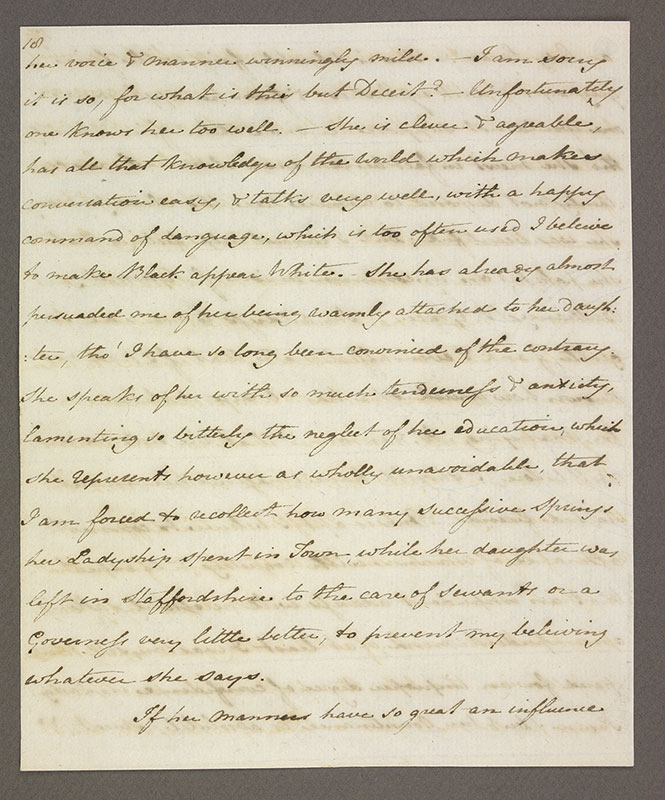 18
her voice & manner winningly mild. – I am sorry
it is so, for what is this but Deceit? – Unfortunately
one knows her too well. – She is clever & agreable,
has all that knowledge of the world which makes
conversation easy, & talks very well, with a happy
command of Language, which is too often used I beleive
to make Black appear White. – She has already almost
persuaded me of her being warmly attached to her daugh:
:ter, tho' I have so long been convinced of the contrary.
She speaks of her with so much tenderness & anxiety,
lamenting so bitterly the neglect of her education, which
she represents however as wholly unavoidable, that
I am forced to recollect how many successive Springs
her Ladyship spent in Town, while her daughter was
left in Staffordshire to the care of Servants or a
Governess very little better, to prevent my beleiving
whatever she says.
If her manners have so great an influence